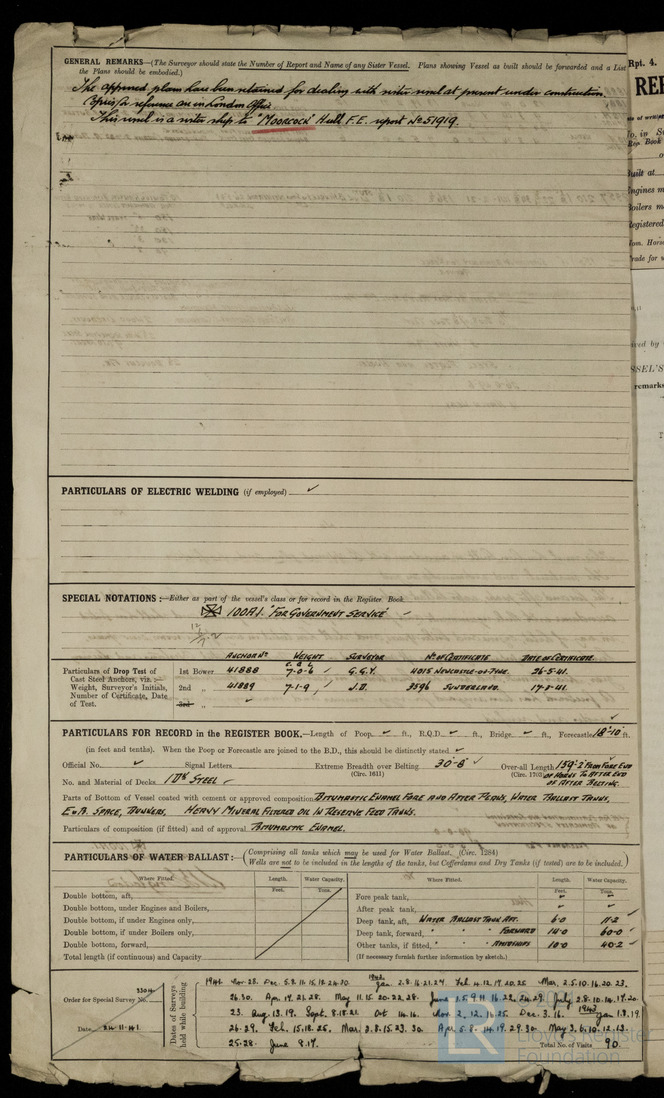 GENERAL REMARKS—(The Surveyor should state the Number of Report and Name of any Sister Vessel. Plans showing Vessel as built should be forwarded and a List
the Plans should be embodied.)
The approved plans have been retained for dealing with sister vessel at present under construction.
Copies for reference are in London Office.
This vessel is a sister ship to "MOORCOCK" Hull F.E. report No 51919.
PARTICULARS OF ELECTRIC WELDING (if employed) ✓
SPECIAL NOTATIONS :—Either as part of the vessel's class or for record in the Register Book.
100A1. "FOR GOVERNMENT SERVICE" –
ANCHOR No WEIGHT SURVEYOR No OF CERTIFICATE DATE OF CERTIFICATE.
Particulars of Drop Test of
Cast Steel Anchors, viz. :—
Weight, Surveyor's Initials,
Number of Certificate, Date
of Test.
1st Bower 41888 7-0-6 ✓ G.G.Y. 4015 NEWCASTLE-ON-TYNE. 26-5-41.
2nd „ 41889 7-1-9 ✓ J.D. 3596 SUNDERLAND. 41.
3rd „ ✓
PARTICULARS FOR RECORD in the REGISTER BOOK.—Length of Poop ✓ ft., R.Q.D. ✓ ft., Bridge ✓ ft., Forecastle 18'-10" ft.
(in feet and tenths). When the Poop or Forecastle are joined to the B.D., this should be distinctly stated ✓
Official No. ✓ Signal Letters – Extreme Breadth over Belting 30'-8" ✓ Over-all Length 159'-2" FROM FORE END
(Circ. 1611) (Circ. 1703) OF HORNS TO AFTER END
OF AFTER BELTING.
No. and Material of Decks. 1 DK STEEL –
Parts of Bottom of Vessel coated with cement or approved composition BITUMASTIC ENAMEL FORE AND AFTER PEAKS, WATER BALLAST TANKS,
E & B. SPACE, BUNKERS, HEAVY MINERAL FILTERED OIL IN RESERVE FEED TANKS.
Particulars of composition (if fitted) and of approval. BITUMASTIC ENAMEL.
PARTICULARS OF WATER BALLAST:— (Comprising all tanks which may be used for Water Ballast. (Circ. 1284)
Wells are not to be included in the lengths of the tanks, but Cofferdams and Dry Tanks (if tested) are to be included.)
Where Fitted. Length. Water Capacity. Where Fitted. Length. Water Capacity.
Feet. Tons. Feet. Tons.
Double bottom, aft, Fore peak tank, ✓ ✓
Double bottom, under Engines and Boilers, After peak tank, ✓ ✓
Double bottom, if under Engines only, Deep tank, aft, WATER BALLAST TANK AFT. 6·0 11·2 ✓
Double bottom, if under Boilers only, Deep tank, forward, " " " FORWARD 14·0 60·0 ✓
Double bottom, forward, Other tanks, if fitted, " " " AMIDSHIPS 10·0 40·2 ✓
Total length (if continuous) and Capacity (If necessary furnish further information by sketch.)
Order for Special Survey No. 3304
Date 24.11.41
Dates of Surveys
held while building
1941 Nov. 28. Dec. 5.8.11.15.18.24.30. 1942 Jan. 2.8.16.21.27. Feb. 4.12.17.20.25 Mar. 2.5.10.16.20.23.
26.30. Apr. 17.21.28. May 11.15.20.22.28. June 1.5.9.11.16.22.24.29. July 2.8.10.14.17.20
23. Aug. 13.19. Sept. 8.18.21. Oct 14.16. Nov. 2.12.16.25. Dec. 3.16. 1943 Jan 1.8.19.
26.29. Feb. 15.18.25. Mar. 2.8.15.23.30. Apr. 5.8.14.19.29.30. May 3.6.10.12.13.
25.28. June 8.17.
Total No. of Visits 90.
Lloyd's Register
Foundation
Rpt. 4.
REP
No. in
Reg. Book
Built at
Engines m
Boilers m
Registered
Nom. Hors
Trade for
SSEL'S
remarks